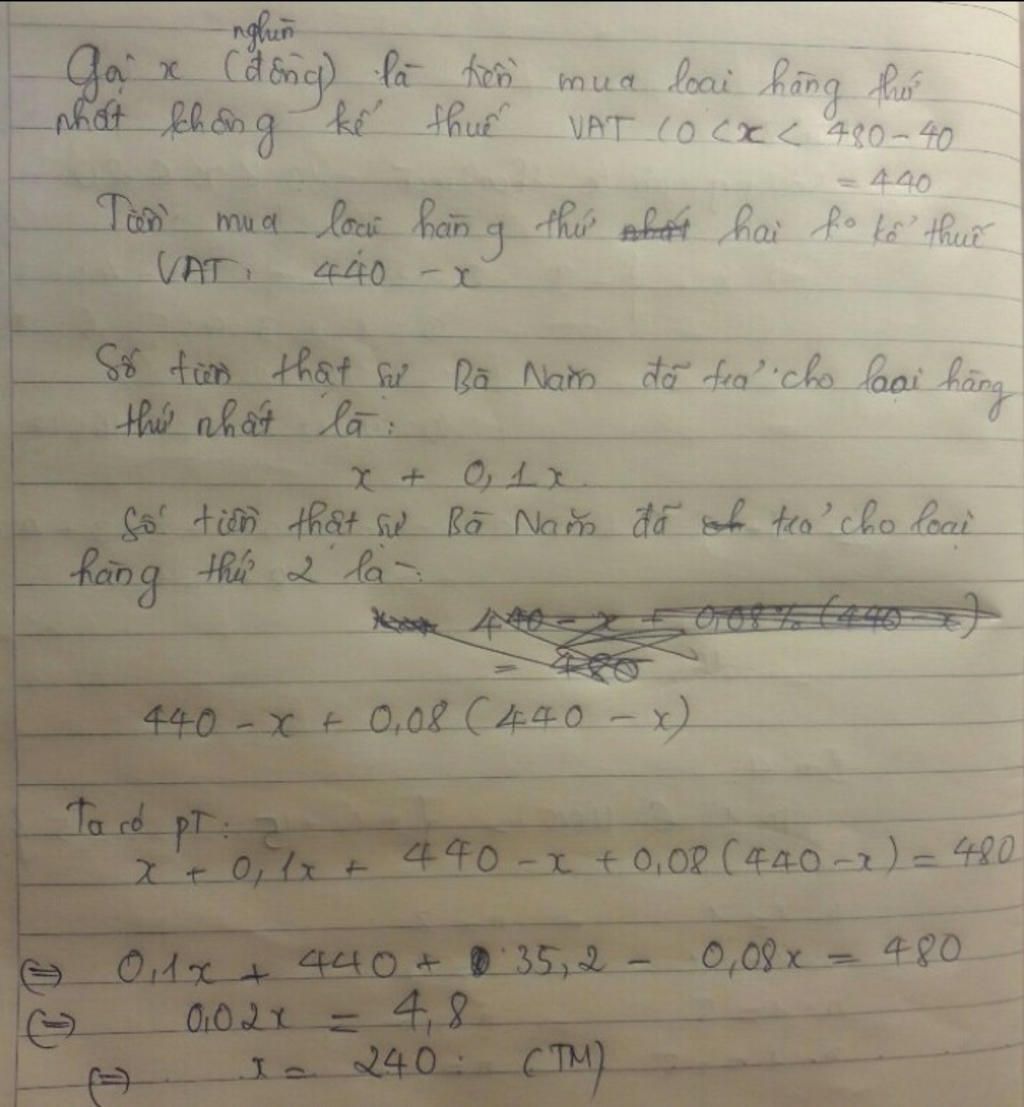 nghìn
Gọi x (đồng) là tiền mua loại hàng thứ
nhất không kể thuế VAT (0 < x < 480 - 40
= 440
Tiền mua loại hàng thứ nhất hai ko kể thuế
VAT: 440 - x
Số tiền thật sự Bà Năm đã trả cho loại hàng
thứ nhất là:
x + 0,1x
Số tiền thật sự Bà Năm đã trả cho loại
hàng thứ 2 là:
440 - x + 0,08% (440 - x)
= 480
440 - x + 0,08 (440 - x)
Ta có pT:
x + 0,1x + 440 - x + 0,08 (440 - x) = 480
⇔ 0,1x + 440 + 35,2 - 0,08x = 480
⇔ 0,02x = 4,8
⇔ x = 240 (TM)